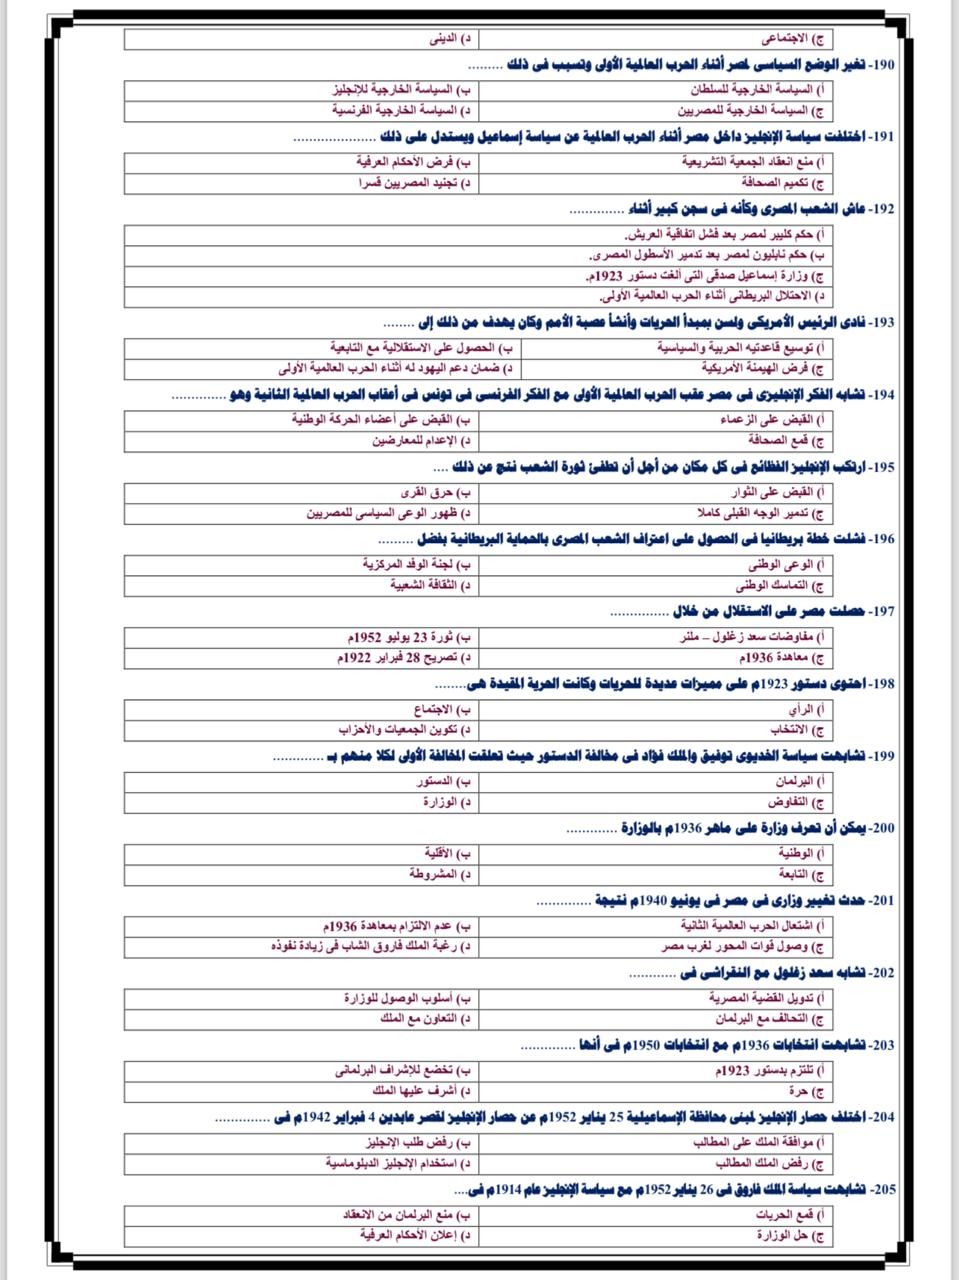 ج) الاجتماعى د) الدينى
190- تغير الوضع السياسى لمصر أثناء الحرب العالمية الأولى وتسبب فى ذلك .........
أ) السياسة الخارجية للسلطان ب) السياسة الخارجية للإنجليز
ج) السياسة الخارجية للمصريين د) السياسة الخارجية الفرنسية
191- اختلفت سياسة الإنجليز داخل مصر أثناء الحرب العالمية عن سياسة إسماعيل ويستدل على ذلك ....................
أ) منع انعقاد الجمعية التشريعية ب) فرض الأحكام العرفية
ج) تكميم الصحافة د) تجنيد المصريين قسرا
192- عاش الشعب المصرى وكأنه فى سجن كبير أثناء .............
أ) حكم كليبر لمصر بعد فشل اتفاقية العريش.
ب) حكم نابليون لمصر بعد تدمير الأسطول المصرى.
ج) وزارة إسماعيل صدقى التى ألغت دستور 1923م.
د) الاحتلال البريطانى أثناء الحرب العالمية الأولى.
193- نادى الرئيس الأمريكى ولسن بمبدأ الحريات وأنشأ عصبة الأمم وكان يهدف من ذلك إلى ........
أ) توسيع قاعدتيه الحربية والسياسية ب) الحصول على الاستقلالية مع التابعية
ج) فرض الهيمنة الأمريكية د) ضمان دعم اليهود له أثناء الحرب العالمية الأولى
194- تشابه الفكر الإنجليزى فى مصر عقب الحرب العالمية الأولى مع الفكر الفرنسى فى تونس فى أعقاب الحرب العالمية الثانية وهو .............
أ) القبض على الزعماء ب) القبض على أعضاء الحركة الوطنية
ج) قمع الصحافة د) الإعدام للمعارضين
195- ارتكب الإنجليز الفظائع فى كل مكان من أجل أن تطفئ ثورة الشعب نتج عن ذلك ....
أ) القبض على الثوار ب) حرق القرى
ج) تدمير الوجه القبلى كاملا د) ظهور الوعى السياسى للمصريين
196- فشلت خطة بريطانيا فى الحصول على اعتراف الشعب المصرى بالحماية البريطانية بفضل .........
أ) الوعى الوطنى ب) لجنة الوفد المركزية
ج) التماسك الوطنى د) الثقافة الشعبية
197- حصلت مصر على الاستقلال من خلال ...............
أ) مفاوضات سعد زغلول – ملنر ب) ثورة 23 يوليو 1952م
ج) معاهدة 1936م د) تصريح 28 فبراير 1922م
198- احتوى دستور 1923م على مميزات عديدة للحريات وكانت الحرية المقيدة هى........
أ) الرأي ب) الاجتماع
ج) الانتخاب د) تكوين الجمعيات والأحزاب
199- تشابهت سياسة الخديوى توفيق والملك فؤاد فى مخالفة الدستور حيث تعلقت المخالفة الأولى لكلا منهم بـ ............
أ) البرلمان ب) الدستور
ج) التفاوض د) الوزارة
200- يمكن أن تعرف وزارة على ماهر 1936م بالوزارة ............
أ) الوطنية ب) الأقلية
ج) التابعة د) المشروطة
201- حدث تغيير وزارى فى مصر فى يونيو 1940م نتيجة .............
أ) اشتعال الحرب العالمية الثانية ب) عدم الالتزام بمعاهدة 1936م
ج) وصول قوات المحور لغرب مصر د) رغبة الملك فاروق الشاب فى زيادة نفوذه
202- تشابه سعد زغلول مع النقراشى فى ............
أ) تدويل القضية المصرية ب) أسلوب الوصول للوزارة
ج) التحالف مع البرلمان د) التعاون مع الملك
203- تشابهت انتخابات 1936م مع انتخابات 1950م فى أنها .............
أ) تلتزم بدستور 1923م ب) تخضع للإشراف البرلمانى
ج) حرة د) أشرف عليها الملك
204- اختلف حصار الإنجليز لمبنى محافظة الإسماعيلية 25 يناير 1952م عن حصار الإنجليز لقصر عابدين 4 فبراير 1942م فى .............
أ) موافقة الملك على المطالب ب) رفض طلب الإنجليز
ج) رفض الملك المطالب د) استخدام الإنجليز الدبلوماسية
205- تشابهت سياسة الملك فاروق فى 26 يناير 1952م مع سياسة الإنجليز عام 1914م فى....
أ) قمع الحريات ب) منع البرلمان من الانعقاد
ج) حل الوزارة د) إعلان الأحكام العرفية